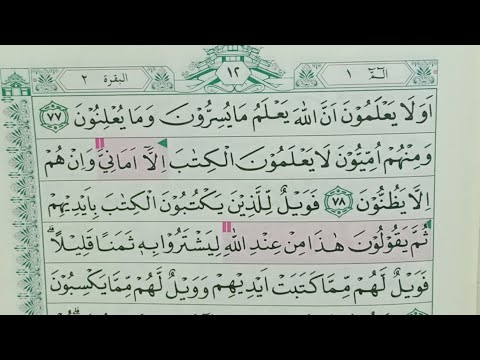 الۤمّۤ ١
١٢
البقرة ٢
اَوَلَا يَعْلَمُوْنَ اَنَّ اللّٰهَ يَعْلَمُ مَا يُسِرُّوْنَ وَمَا يُعْلِنُوْنَ ٧٧
وَمِنْهُمْ اُمِّيُّوْنَ لَا يَعْلَمُوْنَ الْكِتٰبَ اِلَّآ اَمَانِيَّ وَاِنْ هُمْ
اِلَّا يَظُنُّوْنَ ٧٨ فَوَيْلٌ لِّلَّذِيْنَ يَكْتُبُوْنَ الْكِتٰبَ بِاَيْدِيْهِمْ
ثُمَّ يَقُوْلُوْنَ هٰذَا مِنْ عِنْدِ اللّٰهِ لِيَشْتَرُوْا بِهٖ ثَمَنًا قَلِيْلًاۗ
فَوَيْلٌ لَّهُمْ مِّمَّا كَتَبَتْ اَيْدِيْهِمْ وَوَيْلٌ لَّهُمْ مِّمَّا يَكْسِبُوْنَ